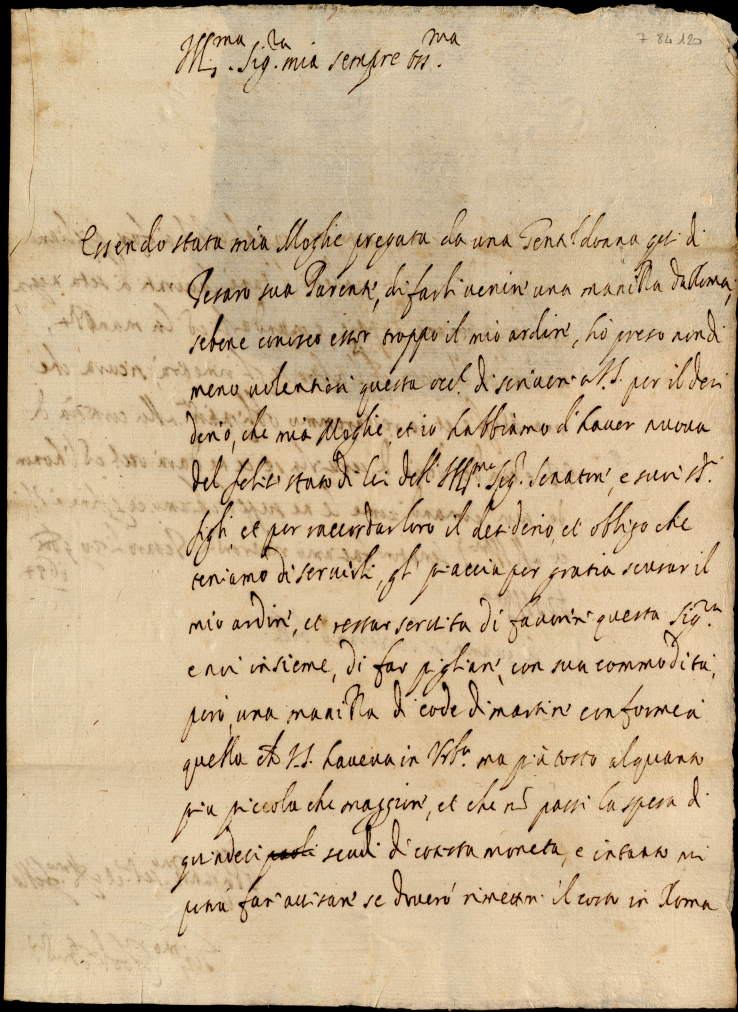 7 84 120
Ill.ma Sig.ra mia sempre oss.ma
Essendo stata mia Moglie pregata da una Gentildonna qui di
Pesaro sua Parente, di farli venire una maniRa da Roma,
sebene conosco esser troppo il mio ardire, hò preso nondi
meno volentieri questa occ.e di scriver a V.S. per il desi
derio, che mia Moglie, et io habbiamo d'haver nuova
del felice stato di lei dell' Ill.mo Sig.r Senatore, e suoi ss.ri
figli, et per raccordar loro il desiderio, et obligo che
teniamo di servirli, gli piaccia per gratia scusar il
mio ardire, et restar servita di favorire questa Sig.ra
e noi insieme, di far pigliare, con sua commodità,
però, una maniRa di code di martire conforme à
quella che V.S. haveva in Urb.o ma più tosto alquanto
più piccola che maggiore, et che nõ passi la spesa di
quindeci paoli scudi di cotesta moneta, e intanto mi
potrà far avisare se doverò rimetter il costo in Roma